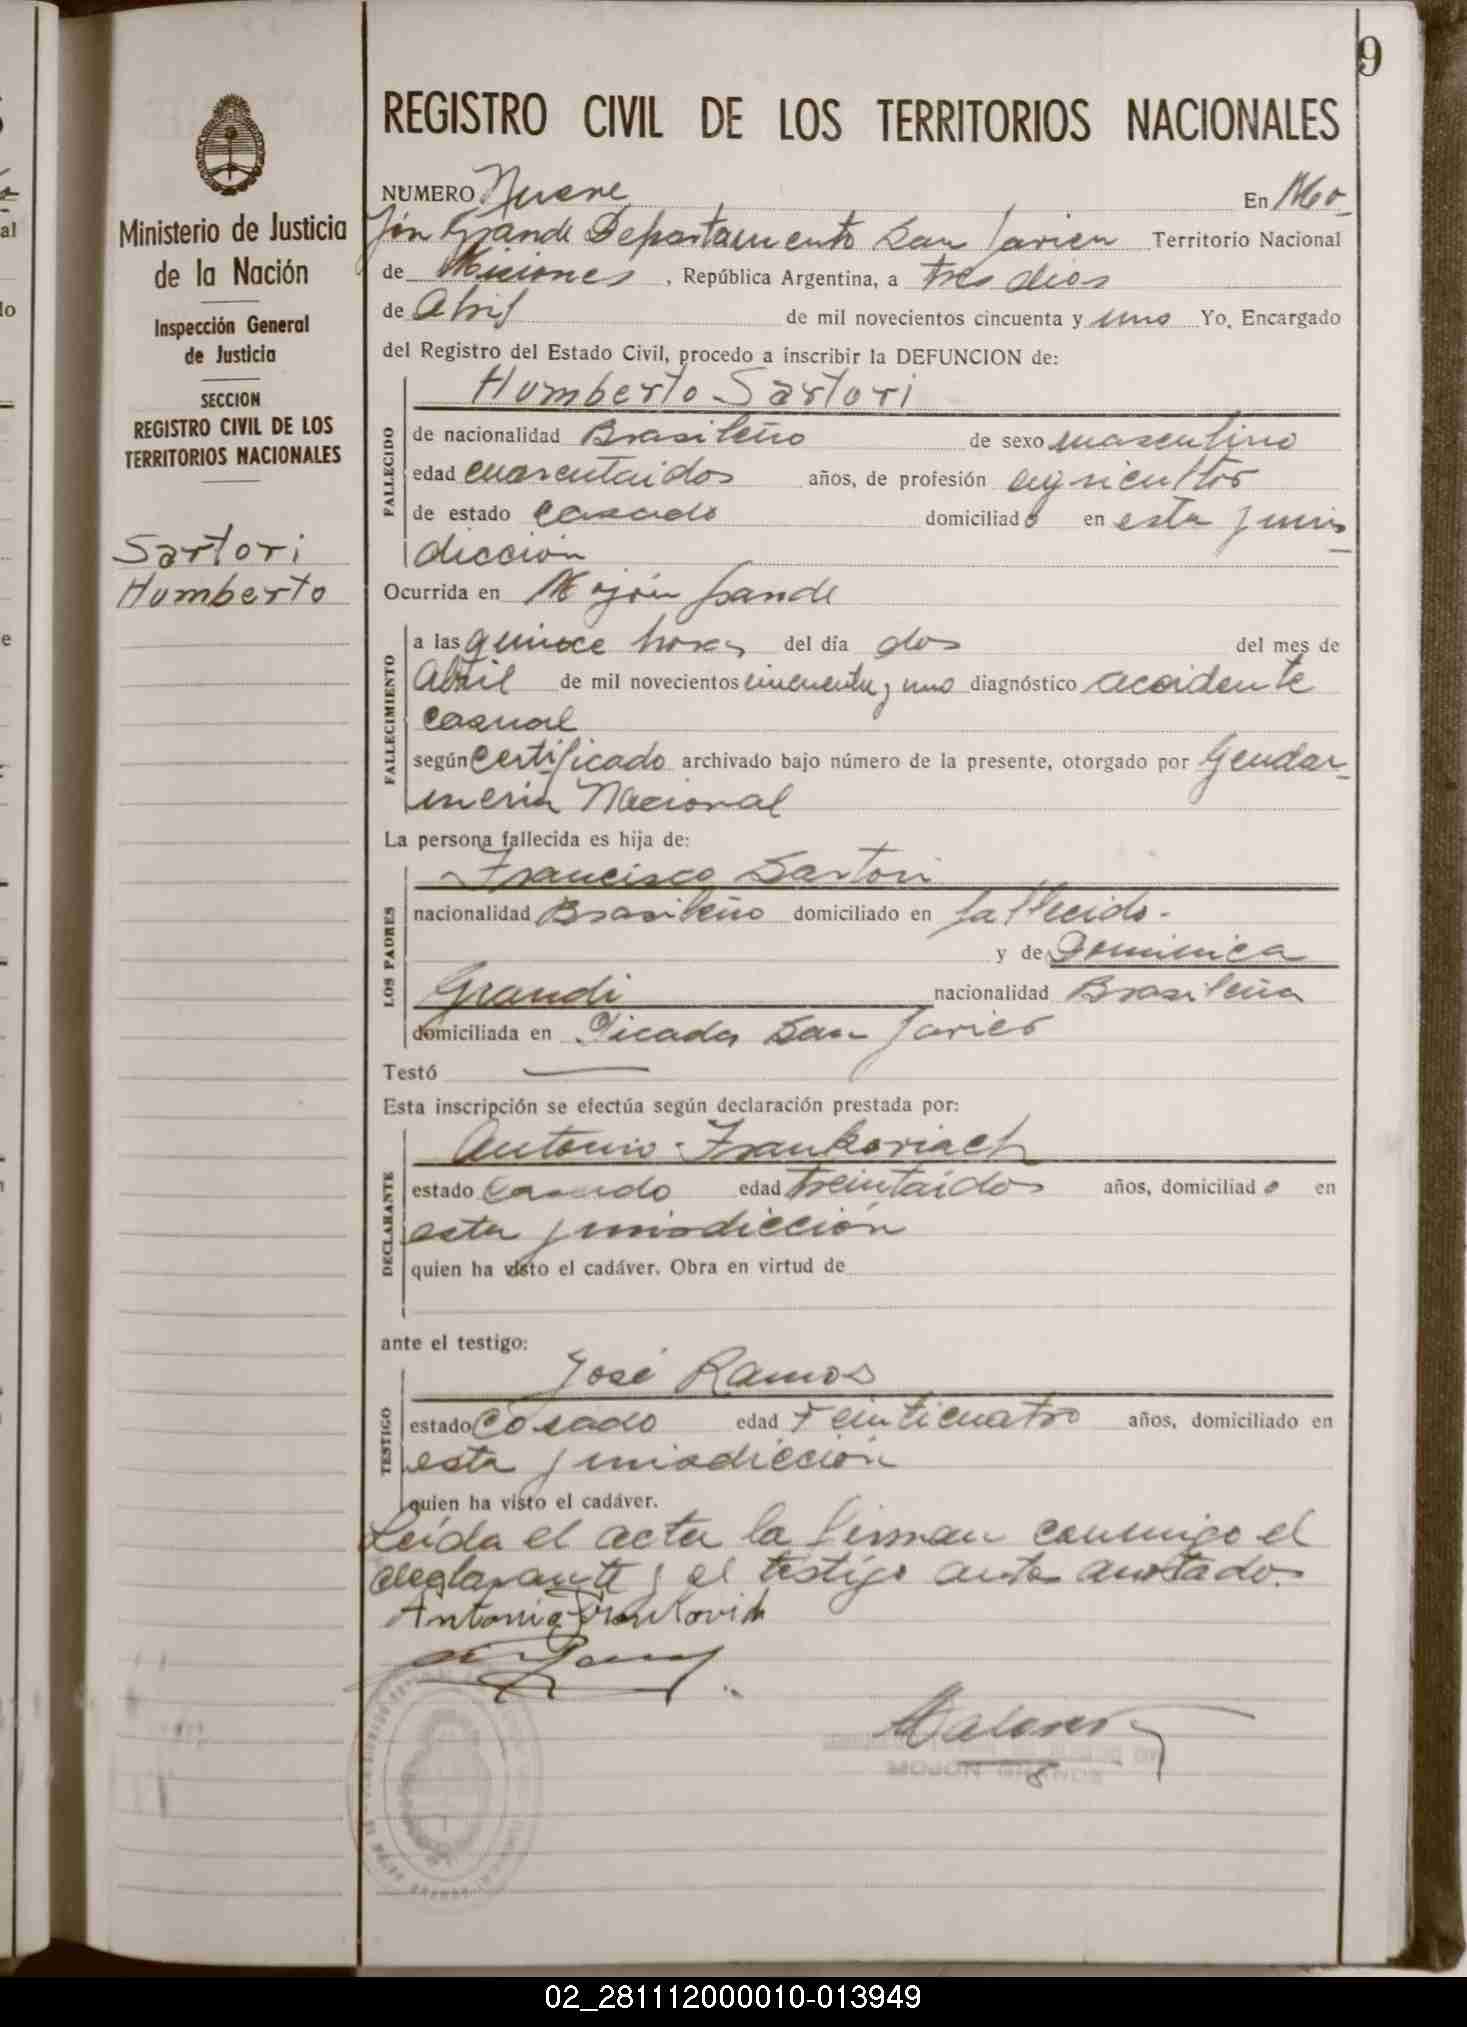 9
REGISTRO CIVIL DE LOS TERRITORIOS NACIONALES
Ministerio de Justicia
de la Nación
Inspección General
de Justicia
SECCION
REGISTRO CIVIL DE LOS
TERRITORIOS NACIONALES
Sartori
Humberto
NUMERO Nueve En Mo-
jón Grande Departamento San Javier Territorio Nacional
de Misiones, República Argentina, a tres días
de Abril de mil novecientos cincuenta y uno Yo, Encargado
del Registro del Estado Civil, procedo a inscribir la DEFUNCION de:
FALLECIDO
Humberto Sartori
de nacionalidad Brasileño de sexo masculino
edad cuarentaidos años, de profesión agricultor
de estado casado domiciliado en esta juris-
dicción
Ocurrida en Mojón Grande
FALLECIMIENTO
a las quince horas del día dos del mes de
Abril de mil novecientos cincuenta y uno diagnóstico accidente
casual
según certificado archivado bajo número de la presente, otorgado por Gendar-
meria Nacional
La persona fallecida es hija de:
LOS PADRES
Francisco Sartori
nacionalidad Brasileño domiciliado en fallecido.
y de Dominica
Grandi nacionalidad Brasileña
domiciliada en Picada San Javier
Testó
Esta inscripción se efectúa según declaración prestada por:
DECLARANTE
Antonio Frankoviach
estado casado edad treintaidos años, domiciliado en
esta jurisdicción
quien ha visto el cadáver. Obra en virtud de
ante el testigo:
TESTIGO
José Ramos
estado Casado edad veinticuatro años, domiciliado en
esta jurisdicción
quien ha visto el cadáver.
Leída el acta la firman conmigo el
declarante y el testigo ante anotado.
Antonio Frankovich
MOJON GRANDE
02_281112000010-013949